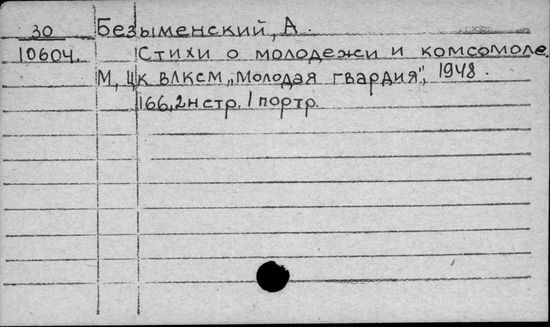 30 Безыменский, А.
10604. Стихи о молодежи и комсомоле.
М, Цк ВЛКСМ „Молодая гвардия“, 1948.
166, 2н стр. 1 портр.